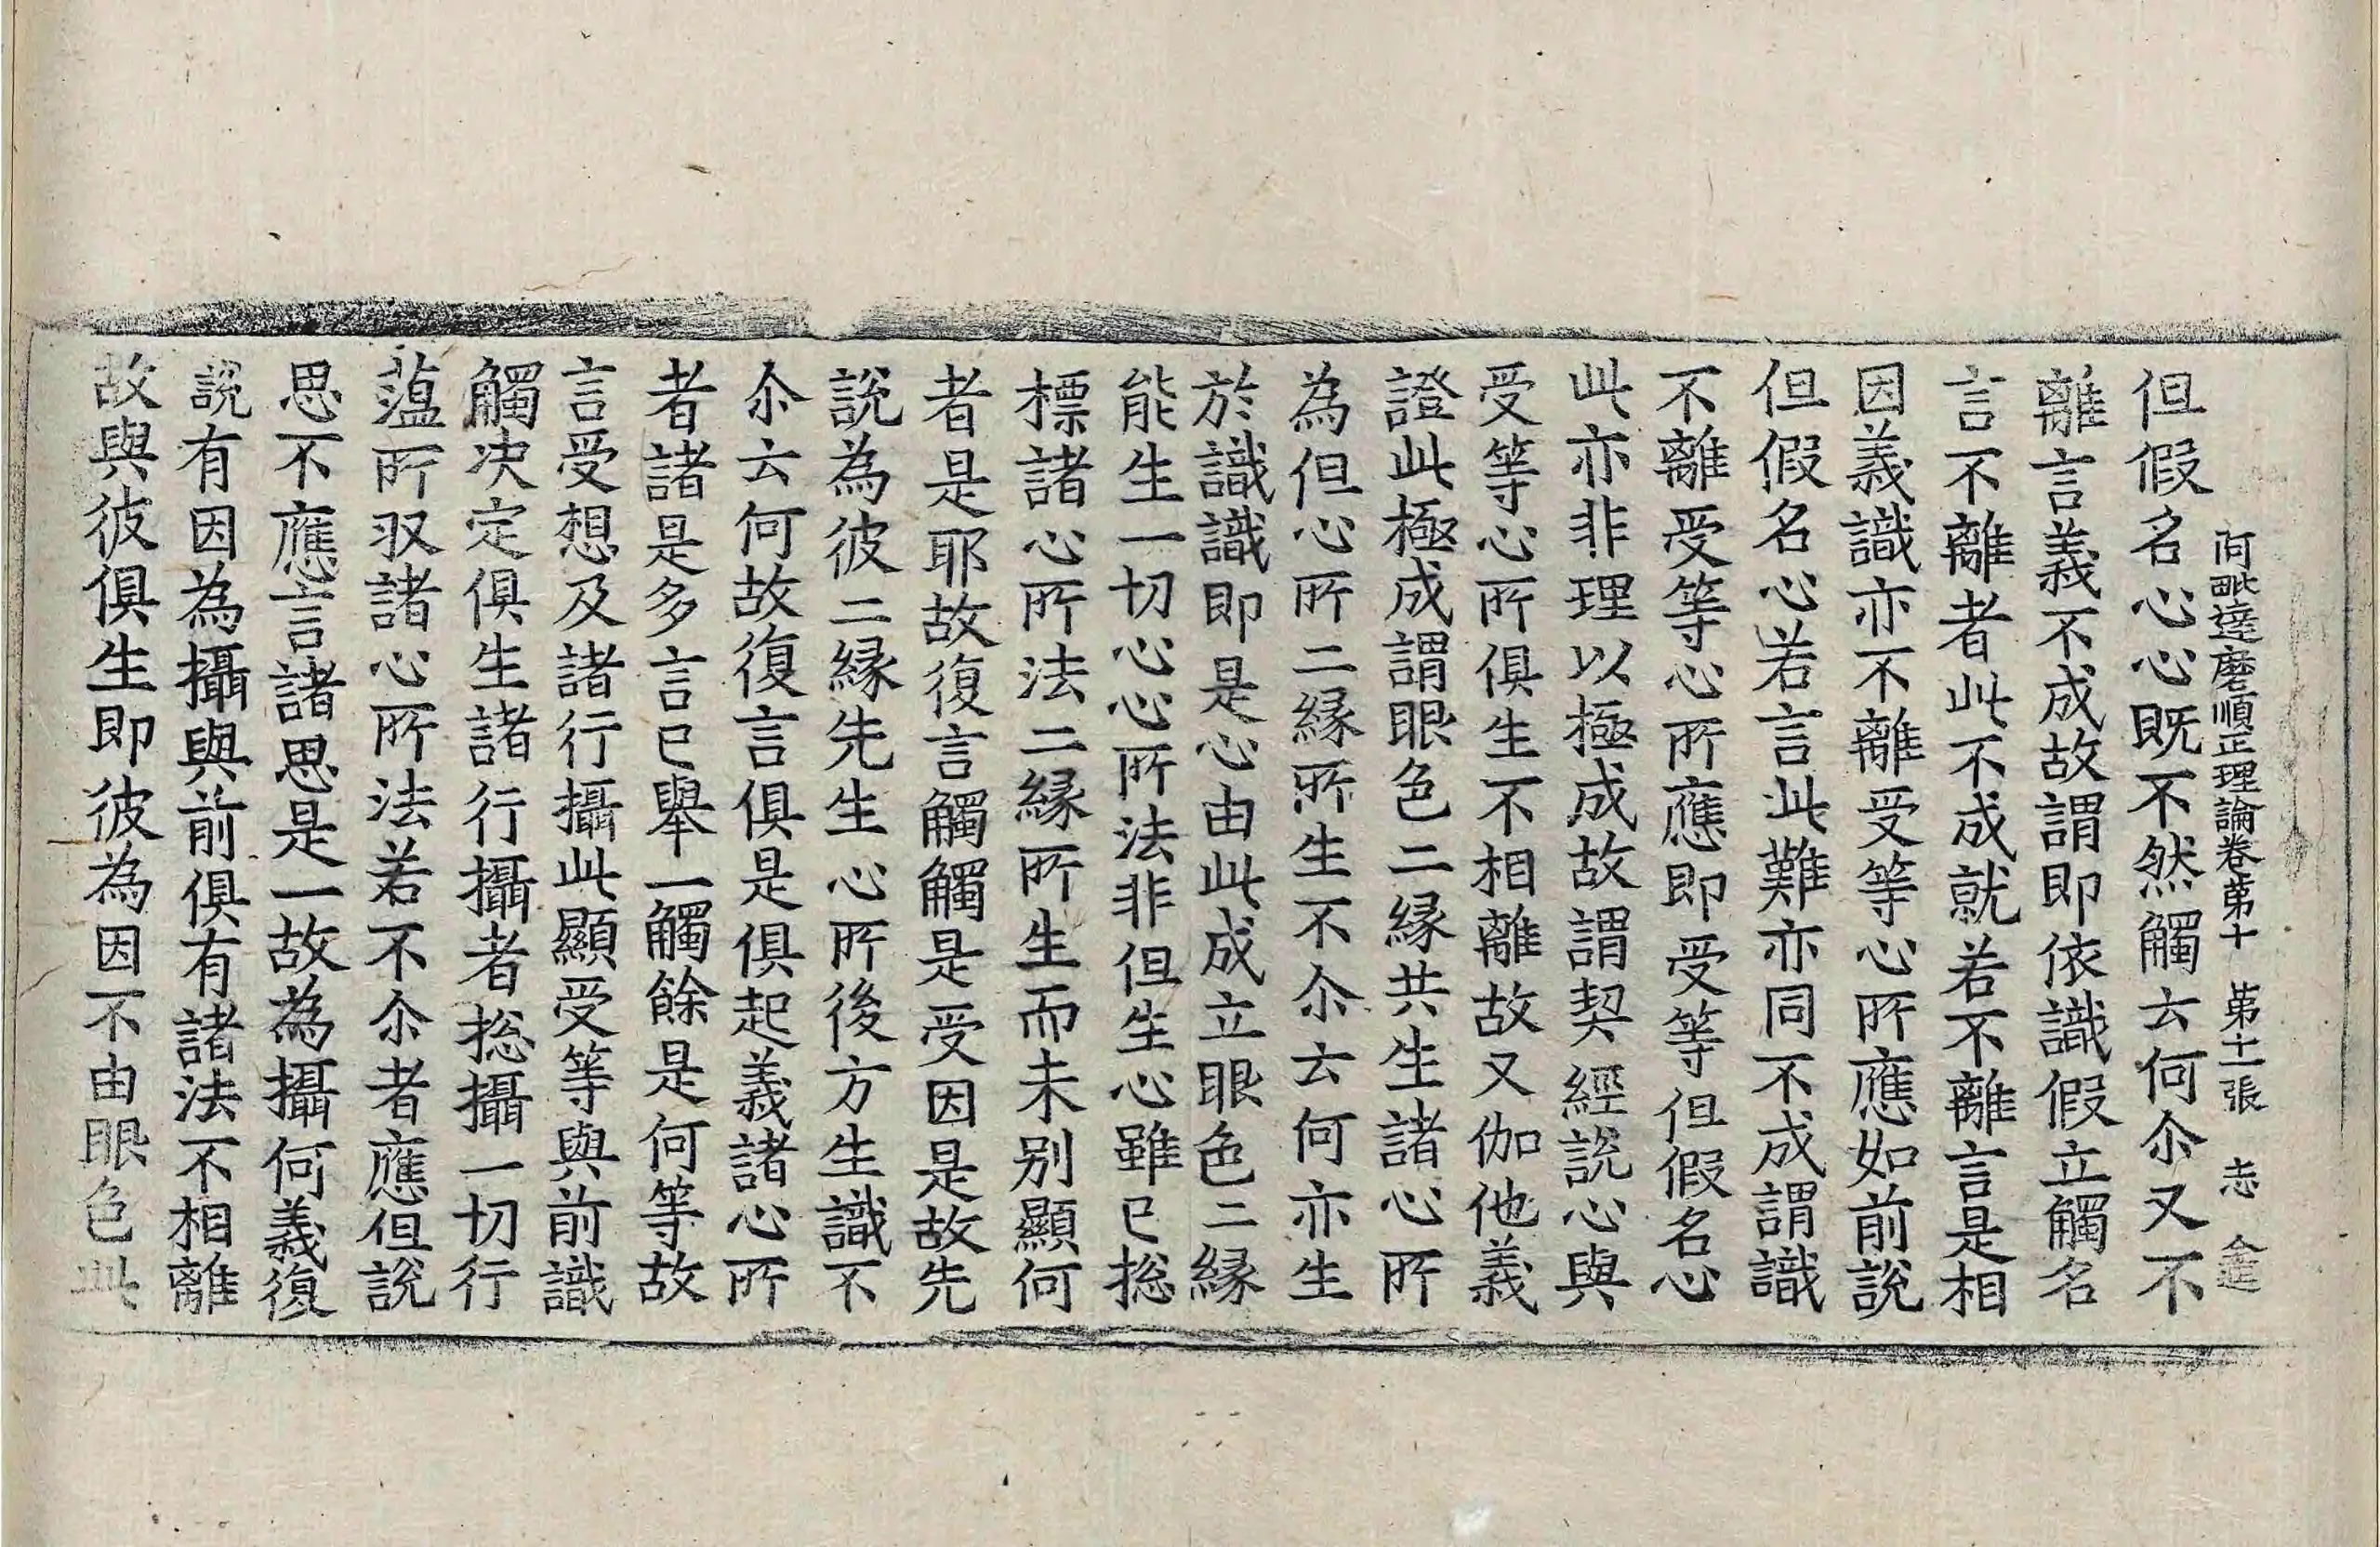 阿毗達磨順正理論卷第十 第十一張 志
但假名心心既不然觸云何尒又不
離言義不成故謂即依識假立觸名
言不離者此不成就若不離言是相
因義識亦不離受等心所應如前說
但假名心若言此難亦同不成謂識
不離受等心所應即受等但假名心
此亦非理以極成故謂契經說心與
受等心所俱生不相離故又伽他義
證此極成謂眼色二縁共生諸心所
為但心所二縁所生不尒云何亦生
於識識即是心由此成立眼色二縁
能生一切心心所法非但生心雖已捴
標諸心所法二縁所生而未別顯何
者是耶故復言觸觸是受因是故先
說為彼二縁先生心所後方生識不
尒云何故復言俱是俱起義諸心所
者諸是多言已舉一觸餘是何等故
言受想及諸行攝此顯受等與前識
觸決定俱生諸行攝者捴攝一切行
蕰所攝諸心所法若不尒者應但說
思不應言諸思是一故為攝何義復
說有因為攝與前俱有諸法不相離
故與彼俱生即彼為因不由眼色此